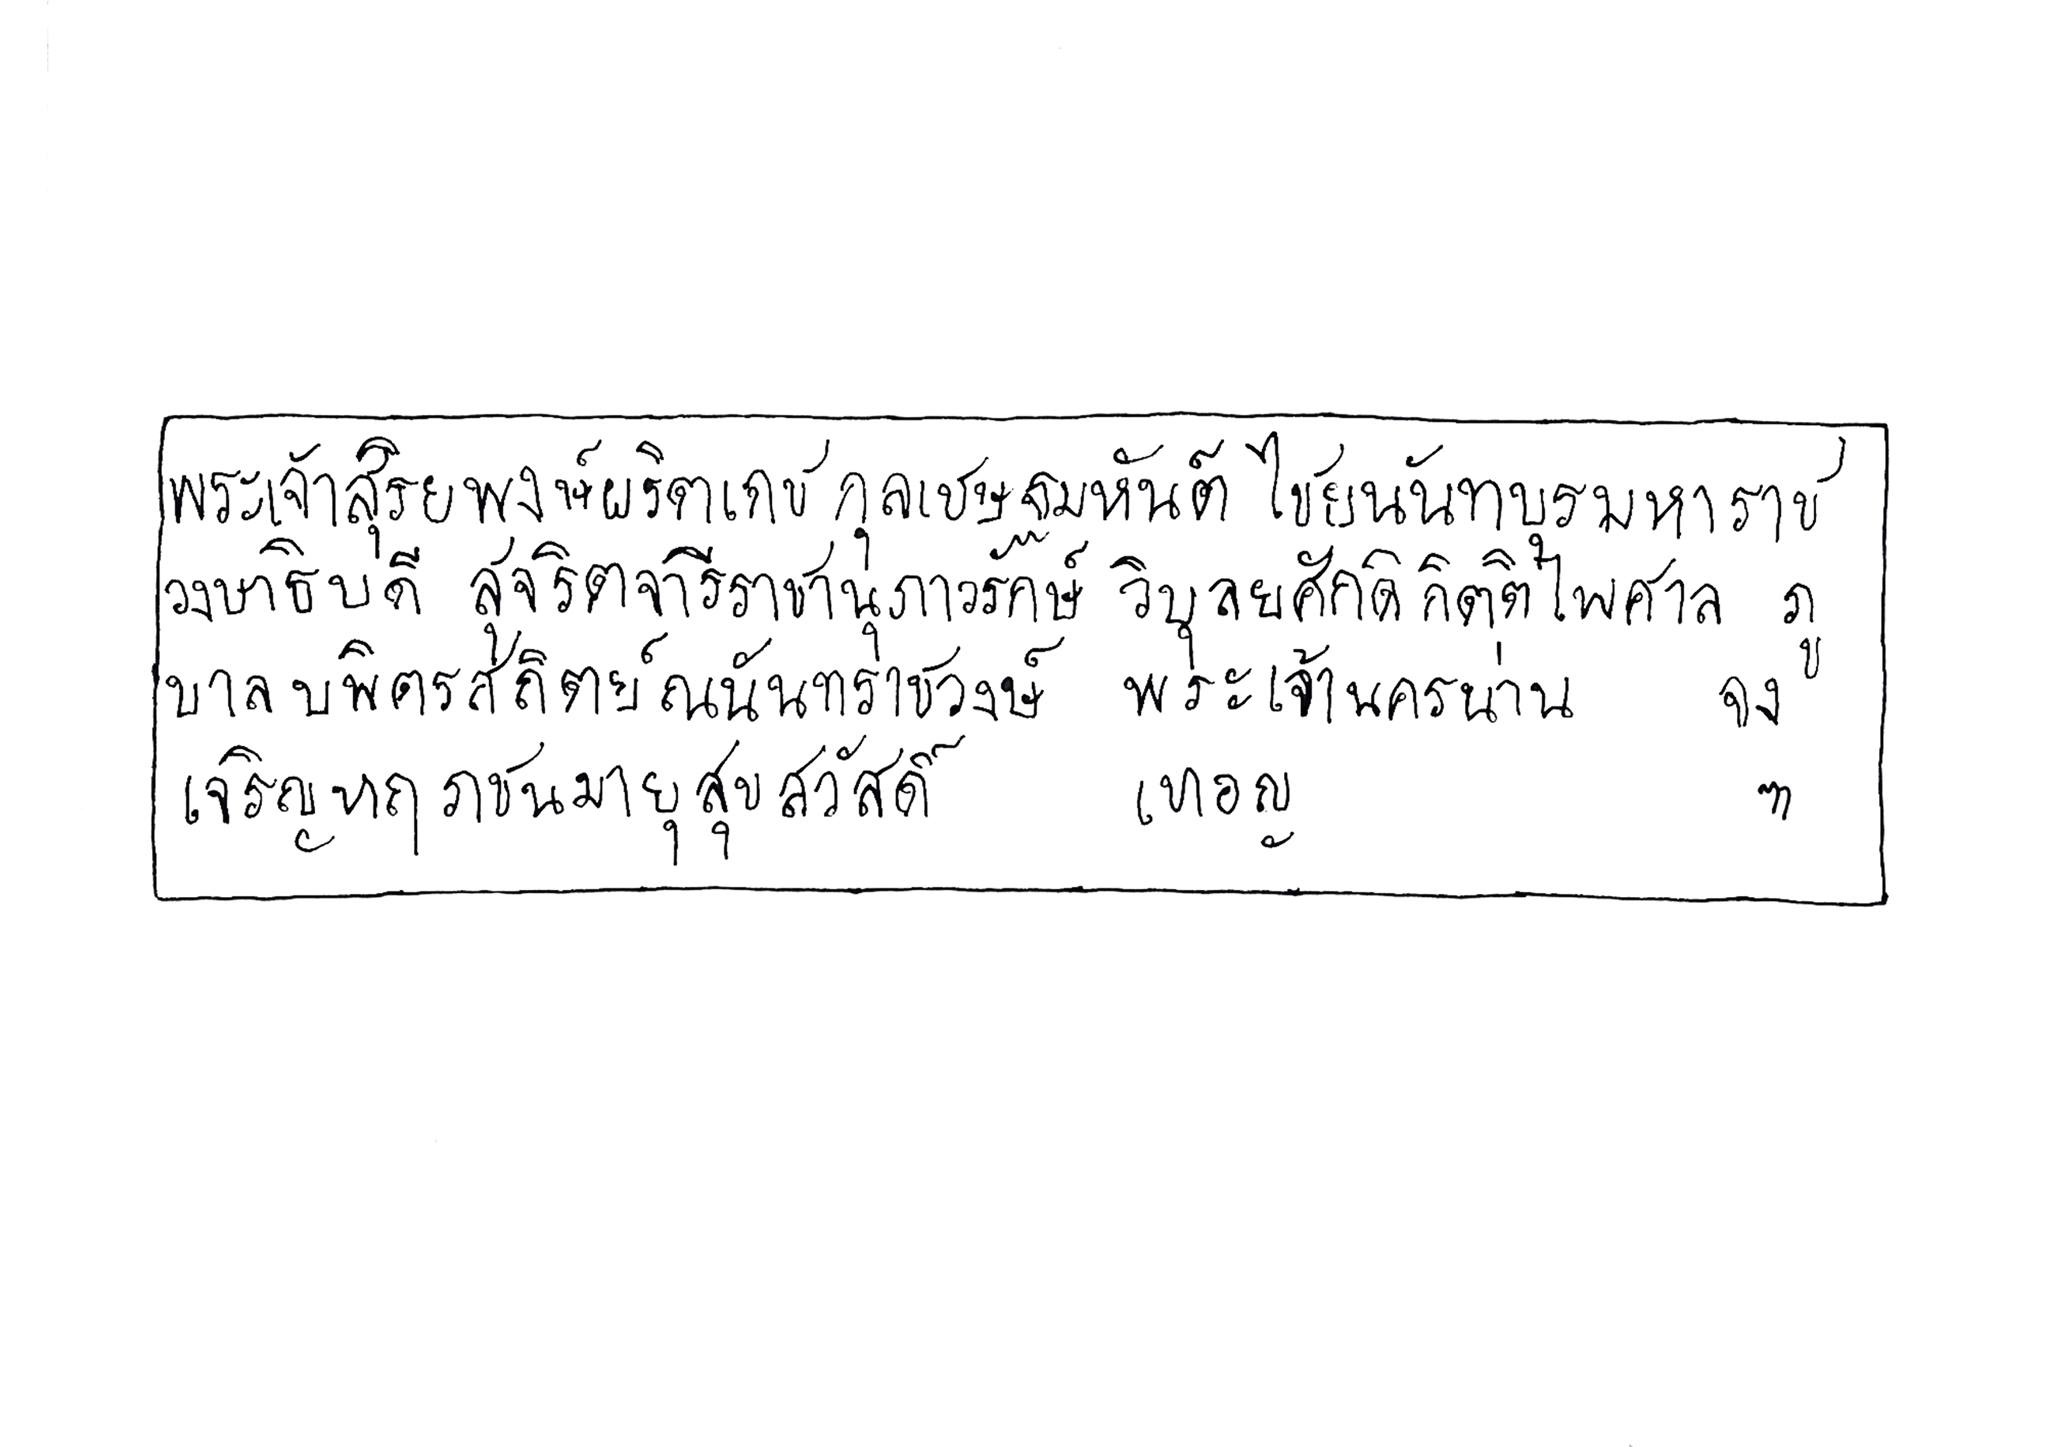 พระเจ้าสุริยพงษ์ผริตเดช กุลเชษฐมหันต์ ไชยนันทบุรมหาราช
วงษาธิบดี สุจริตจารีราชานุภาวรักษ์ วิบุลยศักดิกิตติไพศาล ภู
บาลบพิตรสถิตย์ณนันทราชวงษ์ พระเจ้านครน่าน จง
เจริญทฤฆชนมายุสุขสวัสดิ์ เทอญ ฯ